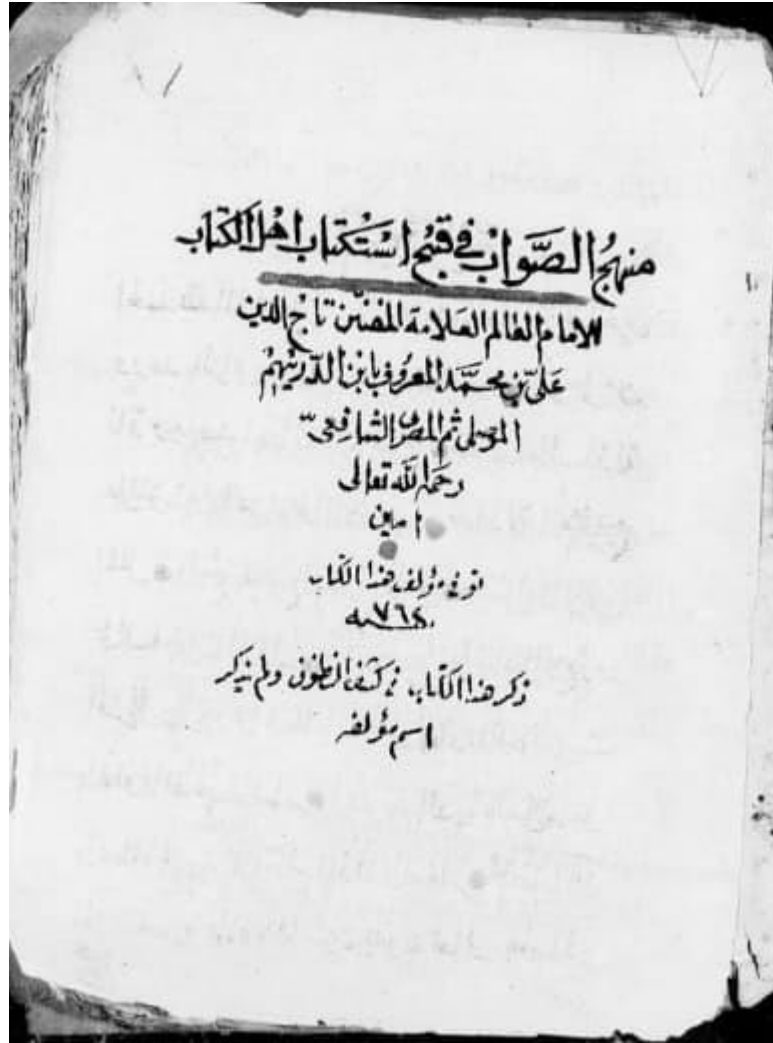 منهجُ الصَّوابْ في قبْح اسْتكتاب اهْل الكتاب
للامام العَالم العَلامة المفنّن تاج الدين
عَلي بن محمَّد المعرُوف بابن الدّريْهم
الموصلي ثم المصري الشافعيّ
رحمَه الله تعالى
امين
توفي مؤلف هذا الكتاب
٧٦٢ سنه
ذكر هذا الكتاب في كشف الظنون ولم يذكر
اسم مؤلفه